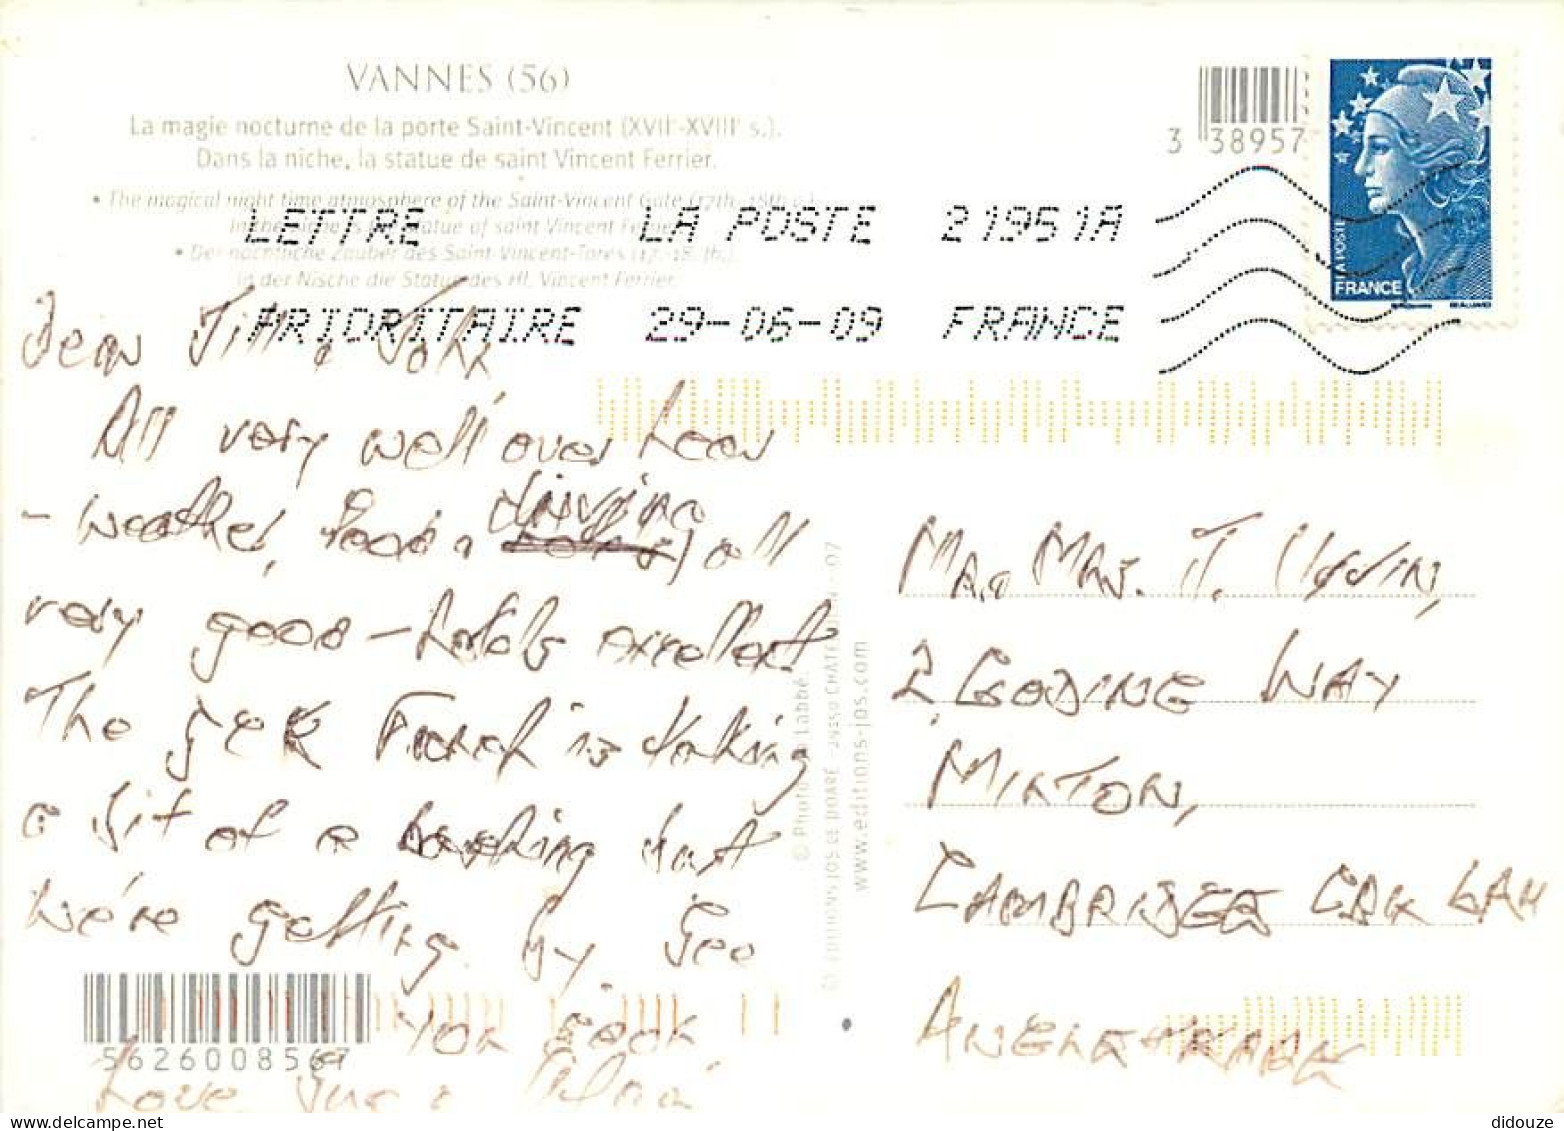 VANNES (56)
La magie nocturne de la porte Saint-Vincent (XVIIe-XVIIIe s.).
Dans la niche, la statue de saint Vincent Ferrier.
• The magical night time atmosphere of the Saint-Vincent Gate (17th-18th c.)
In the niche is the statue of saint Vincent Ferrier.
• Der nächtliche Zauber des Saint-Vincent-Tores (17.-18. Jh.),
in der Nische die Statue des Hl. Vincent Ferrier.
3 38957
LA POSTE
FRANCE
BEAUJARD
LETTRE LA POSTE 21951A
PRIORITAIRE 29-06-09 FRANCE
Dear Jill & John
All very well over here
- weather, food & driving all
very good - hotels excellent
The French is taking
a bit of a but
we're getting by. See
you soon
Love Sue &
© Photo : Labbé.
www.editions-jos.com
Mr. & Mrs. J.
2, WAY
CAMBRIDGE
5626008567
didouze